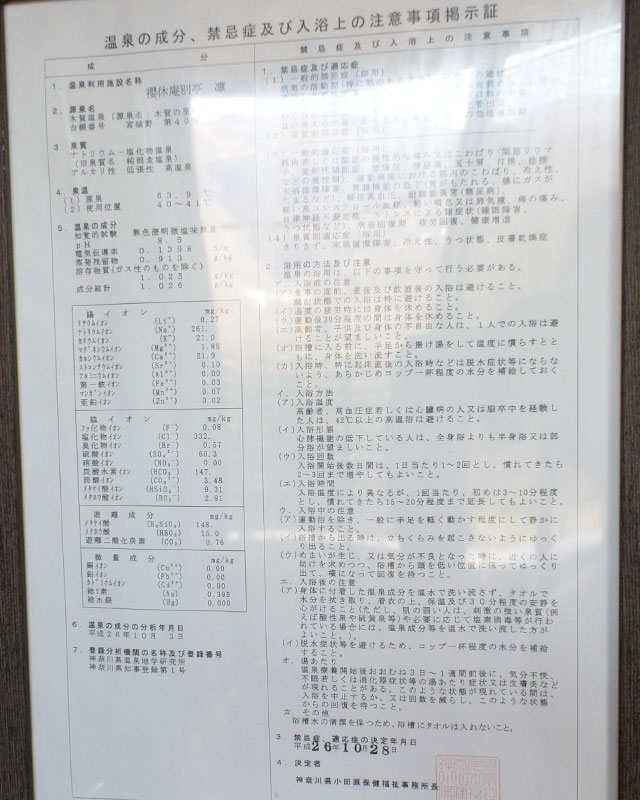 温泉の成分、禁忌症及び入浴上の注意事項掲示証
成 分
1．温泉利用施設名称
櫻休庵別亭 凛
2．源泉名
木賀温泉（源泉名：木賀の
台帳番号 宮城野 第40
3．泉質
ナトリウム－塩化物温泉
（旧泉質名 純弱食塩泉）
アルカリ性 低張性 高温泉
4．泉温
（1）源泉 63.9 ℃
（2）使用位置 40～41℃
5．温泉の成分
知覚的試験 無色澄明微塩味無臭
pH 8.5
電気伝導率 0.1398 S/m
蒸発残留物 0.913 g/kg
溶存物質(ガス性のものを除く)
1.025 g/kg
成分総計 1.026 g/kg
陽イオン mg/kg
リチウムイオン (Li⁺) 0.27
ナトリウムイオン (Na⁺) 261.
カリウムイオン (K⁺) 21.0
マグネシウムイオン (Mg²⁺) 1.85
カルシウムイオン (Ca²⁺) 21.9
ストロンチウムイオン (Sr²⁺) 0.10
アルミニウムイオン (Al³⁺) 0.00
第一鉄イオン (Fe²⁺) 0.03
マンガンイオン (Mn²⁺) 0.07
亜鉛イオン (Zn²⁺) 0.02
陰イオン mg/kg
フッ化物イオン (F⁻) 0.08
塩化物イオン (Cl⁻) 332.
臭化物イオン (Br⁻) 0.57
硫酸イオン (SO₄²⁻) 60.3
硝酸イオン (NO₃⁻) 0.00
炭酸水素イオン (HCO₃⁻) 147.
炭酸イオン (CO₃²⁻) 3.48
メタケイ酸イオン (HSiO₃⁻) 9.31
メタホウ酸イオン (BO₂⁻) 2.91
遊離成分 mg/kg
メタケイ酸 (H₂SiO₃) 148.
メタホウ酸 (HBO₂) 15.0
遊離二酸化炭素 (CO₂) 0.76
微量成分 mg/kg
銅イオン (Cu²⁺) 0.00
鉛イオン (Pb²⁺) 0.00
カドミウムイオン (Cd²⁺) 0.00
総ヒ素 (As) 0.398
総水銀 (Hg) 0.000
6．温泉の成分の分析年月日
平成26年10月 3日
7．登録分析機関の名称及び登録番号
神奈川県温泉地学研究所
神奈川県知事登録第1号
禁忌症及び入浴上の注意事項
1．禁忌症及び適応症
（1）一般的禁忌症（浴用）
2．浴用の方法及び注意
温泉の浴用は、以下の事項を守って行う必要がある。
ア．入浴前の注意
（ア）食事の直前、直後及び飲酒後の入浴は避けること。
酩酊状態での入浴は特に避けること。
（イ）過度の疲労時には身体を休めること。
（ウ）運動後30分程度の間は身体を休めること。
（エ）高齢者、子供及び身体の不自由な人は、1人での入浴は避
けることが望ましいこと。
（オ）浴槽に入る前に、手足から掛け湯をして温度に慣らすとと
もに、身体を洗い流すこと。
（カ）入浴時、特に起床直後の入浴時などは脱水症状等にならな
いよう、あらかじめコップ一杯程度の水分を補給しておく
こと。
イ．入浴方法
（ア）入浴温度
高齢者、高血圧症若しくは心臓病の人又は脳卒中を経験し
た人は、42℃以上の高温浴は避けること。
（イ）入浴形態
心肺機能の低下している人は、全身浴よりも半身浴又は部
分浴が望ましいこと。
（ウ）入浴回数
入浴開始後数日間は、1日当たり1～2回とし、慣れてきたら
2～3回まで増やしてもよいこと。
（エ）入浴時間
入浴温度により異なるが、1回当たり、初めは3～10分程度
とし、慣れてきたら15～20分程度まで延長してもよいこと。
ウ．入浴中の注意
（ア）運動浴を除き、一般に手足を軽く動かす程度にして静かに
入浴すること。
（イ）浴槽から出る時は、立ちくらみを起こさないようにゆっく
り出ること。
（ウ）めまいが生じ、又は気分が不良となった時は、近くの人に
助けを求めつつ、浴槽から頭を低い位置に保ってゆっくり
出て、横になって回復を待つこと。
エ．入浴後の注意
（ア）身体に付着した温泉成分を温水で洗い流さず、タオルで
水分を拭き取り、着衣の上、保温及び30分程度の安静を
心がけること（ただし、肌の弱い人は、刺激の強い泉質（例
えば酸性泉や硫黄泉等）や必要に応じて塩素消毒等が行わ
れている場合には、温泉成分等を温水で洗い流した方が
よいこと。）。
（イ）脱水症状等を避けるため、コップ一杯程度の水分を補給
すること。
オ．湯あたり
温泉療養開始後おおむね3日～1週間前後に、気分不快、
不眠若しくは消化器症状等の湯あたり症状又は皮膚炎など
が現れることがある。このような状態が現れている間は、
入浴を中止するか、又は回数を減らし、このような状態
からの回復を待つこと。
カ その他
浴槽水の清潔を保つため、浴槽にタオルは入れないこと。
3．禁忌症、適応症の決定年月日
平成26年10月28日
4．決定者
神奈川県小田原保健福祉事務所長